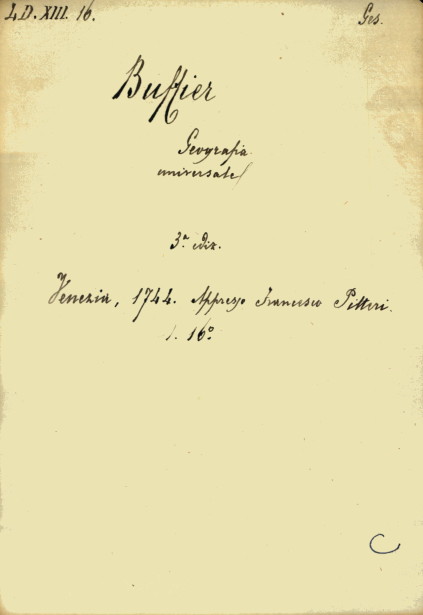 L.D. XIII. 16.
Ges.
Buffier
Geografia
universale
3.ª ediz.
Venezia, 1744. Appresso Francesco Pitteri.
16º
C